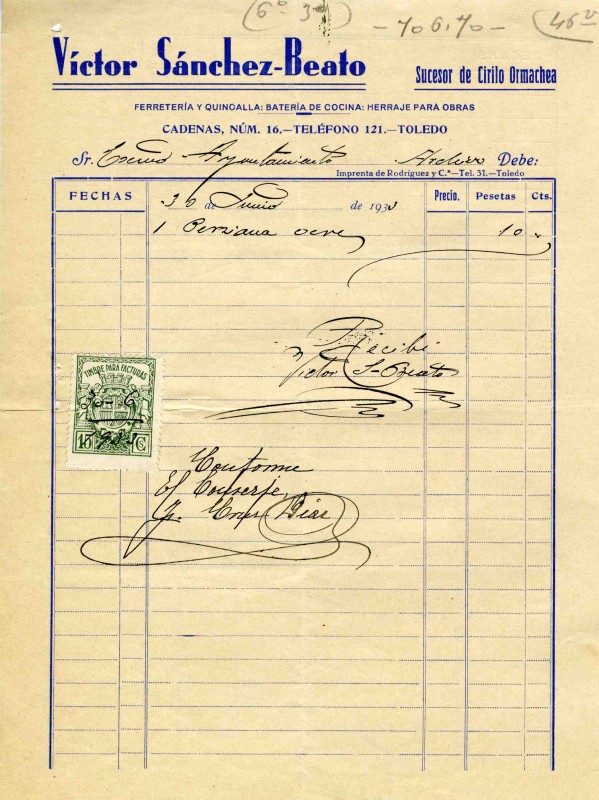 (6º 3º) - 706,70 -
Víctor Sánchez-Beato
Sucesor de Cirilo Ormachea
FERRETERÍA Y QUINCALLA: BATERÍA DE COCINA: HERRAJE PARA OBRAS
CADENAS, NÚM. 16.—TELÉFONO 121.—TOLEDO
Sr. Excmo Ayuntamiento Debe:
Imprenta de Rodríguez y C.ª—Tel. 31.—Toledo
FECHAS 30 de Junio de 1933 Precio. Pesetas Cts.
1 Persiana 10 -
Recibí
Victor S-Beato
TIMBRE PARA FACTURAS
15 C
Conforme
El Conserje,